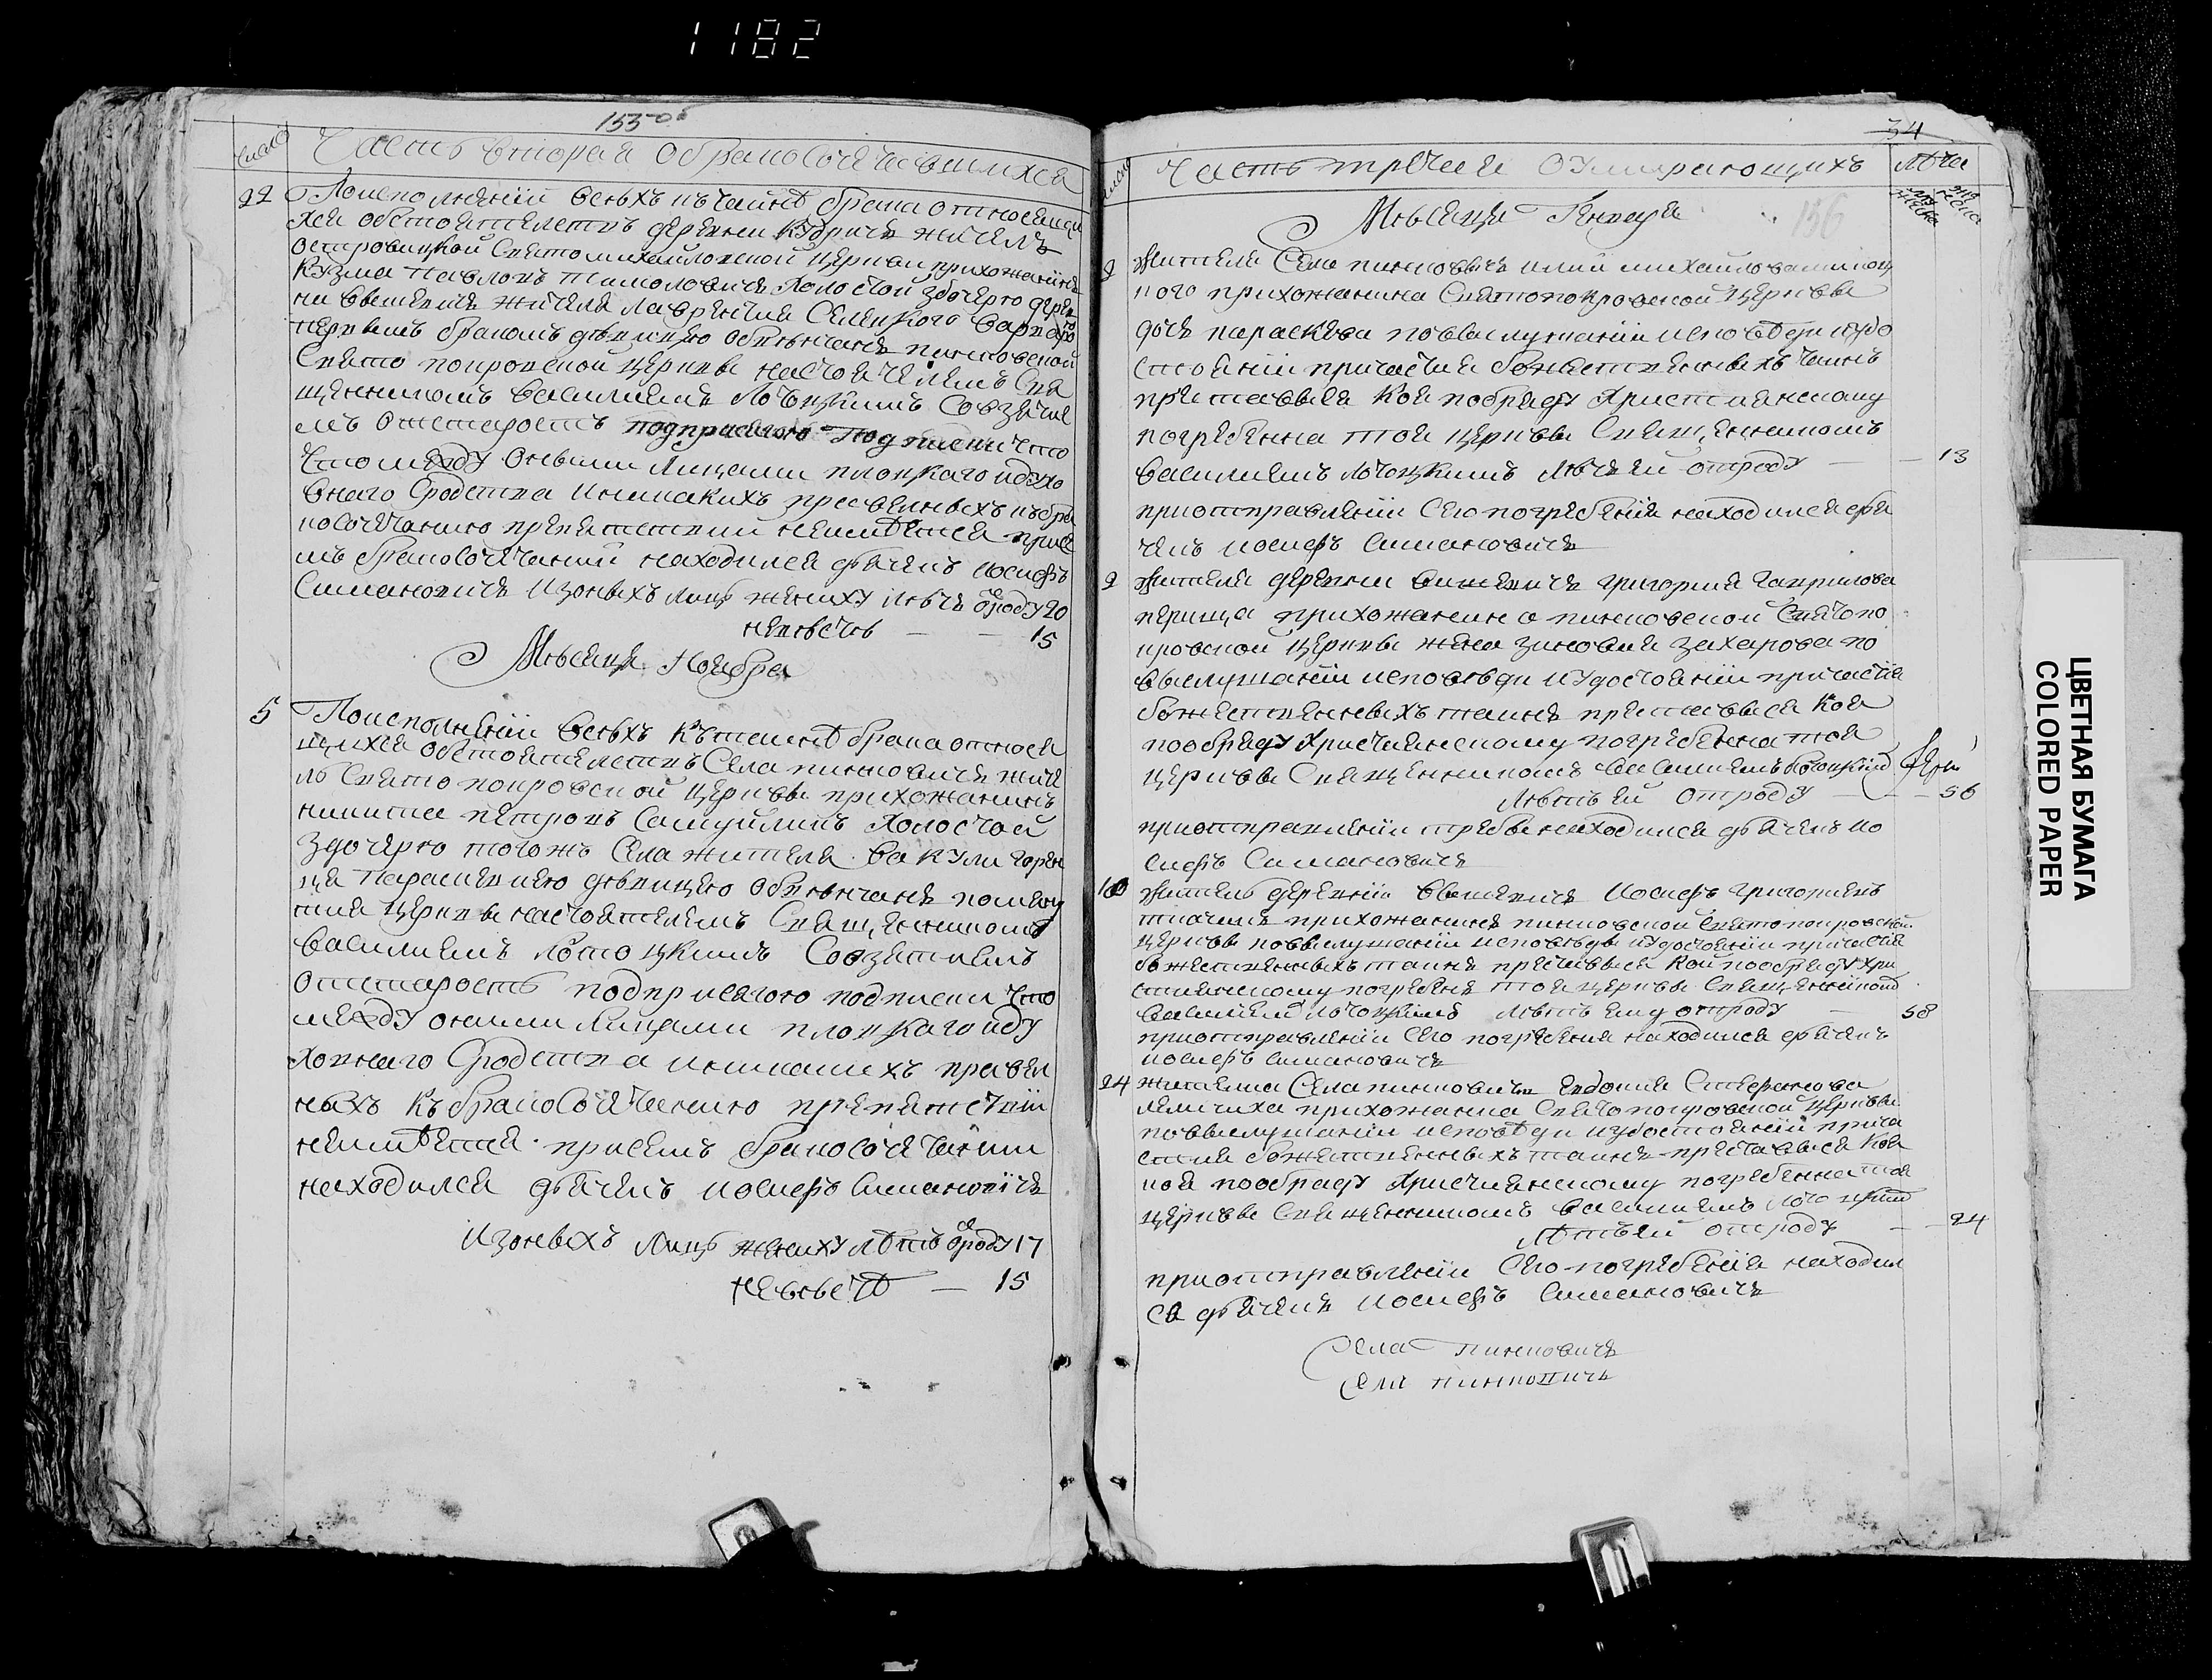 1182
155 об
число
Часть вторая о бракосочетавшихся
22 По исполнении всехъ къ тайне брака относящи
хся обстоятелствъ деревни Кудричъ жителъ
островицкой Святомихайловской церкви прихожанинъ
Кузма Павловъ холостой здочерю дерев
ни Вешевичъ жителя Лаврентия Селецкого Варварою
первымъ бракомъ девицею обвенчанъ пинковской
Свято покровской церкви настоятелемъ Свя
щенникомъ Василиемъ Лотоцкимъ Совзятие
мъ отстаростъ подприсягою подписки что
что между оными лицами плоцкаго идухо
внаго Сродства иниакихъ правелныхъ къ бра
косочетанию препятствий неимеется присе
мъ бракосочетании находился дьячекъ Иосифъ
Симановичъ Изоныхъ лицъ жениху летъ отроду 20
невесте — — 15
Месяца Ноября
5 По исполнении всехъ къ тайне брака относя
щихся обстоятелствъ Села пинковичъ жите
ль Свято покровской церкви прихожанинъ
никита петровъ Самуйликъ холостой
здочерю тогожъ Села жителя Вакули горен
ца Параскевиею девицею обвенчанъ помяну
тия церкви настоятелемъ Священникомъ
Василиемъ Лотоцкимъ Совзятиемъ
отстаростъ подприсягою подписки что
между оними Лицами плоцкаго иду
ховнаго Сродства иникакихъ правел
ныхъ къ бракосочетанию препятствий
неимеется присемъ бракосочетании
находился дьячекъ Иосифъ Симановичъ
Изоныхъ лицъ жениху летъ отроду 17
невесте — 15
34
число
Часть третия о Умирающихъ
лета
156
Месяца Генваря
2 Жителя Села пинковичъ илии михайлова
ного прихожанина Святопокровской церкви
дочь параскева повыслушании исповеди иудо
стоянии причастия божественныхъ таинъ
преставися коя пообряду Християнскому
погребенна тоя церкви Священникомъ
Василиемъ лотоцкимъ летъ ей отроду — — 13
приотправлении Сего погребения находился дья
чекъ Иосифъ Симановичъ
2 Жителя деревни Вешевичъ григория гаврилова
перица прихожанина пинковской Святопо
кровской церкви жена зиновия захарова по
выслушании исповеди иудостоянии причастия
божественныхъ таинъ преставися коя
пообряду Християнскому погребенна тоя
церкви Священникомъ Василиемъ Лотоцкимъ
летъ ей отроду — — 56
приотправлении требы находился дьячекъ ио
сифъ Симановичъ
10 Жителъ деревни Вешевичъ Иосифъ григориевъ
ткачикъ прихожанинъ пинковской Святопокровской
церкви повыслушании исповеди иудостоянии причастия
божественныхъ таинъ преставися кой пообряду Хри
стиянскому погребенъ тоя церкви Священникомъ
Василиемъ лотоцкимъ летъ ему отроду — 58
приотправлении Сего погребения находился дьячекъ
иосифъ Симановичъ
24 жителка Села пинковичъ Евдокия Стефанова
лемичиха прихожанка Святопокровской церкви
повыслушании исповеди иудостоянии прича
стия божественныхъ таинъ преставися коя
коя пообряду Християнскому погребенна тоя
церкви Священникомъ Василиемъ Лотоцкимъ
летъ ей отроду — — 24
приотправлении Сего погребения находил
ся дьячекъ Иосифъ Симановичъ
Села пинковичъ
Села пинковичъ
ЦВЕТНАЯ БУМАГА
COLORED PAPER